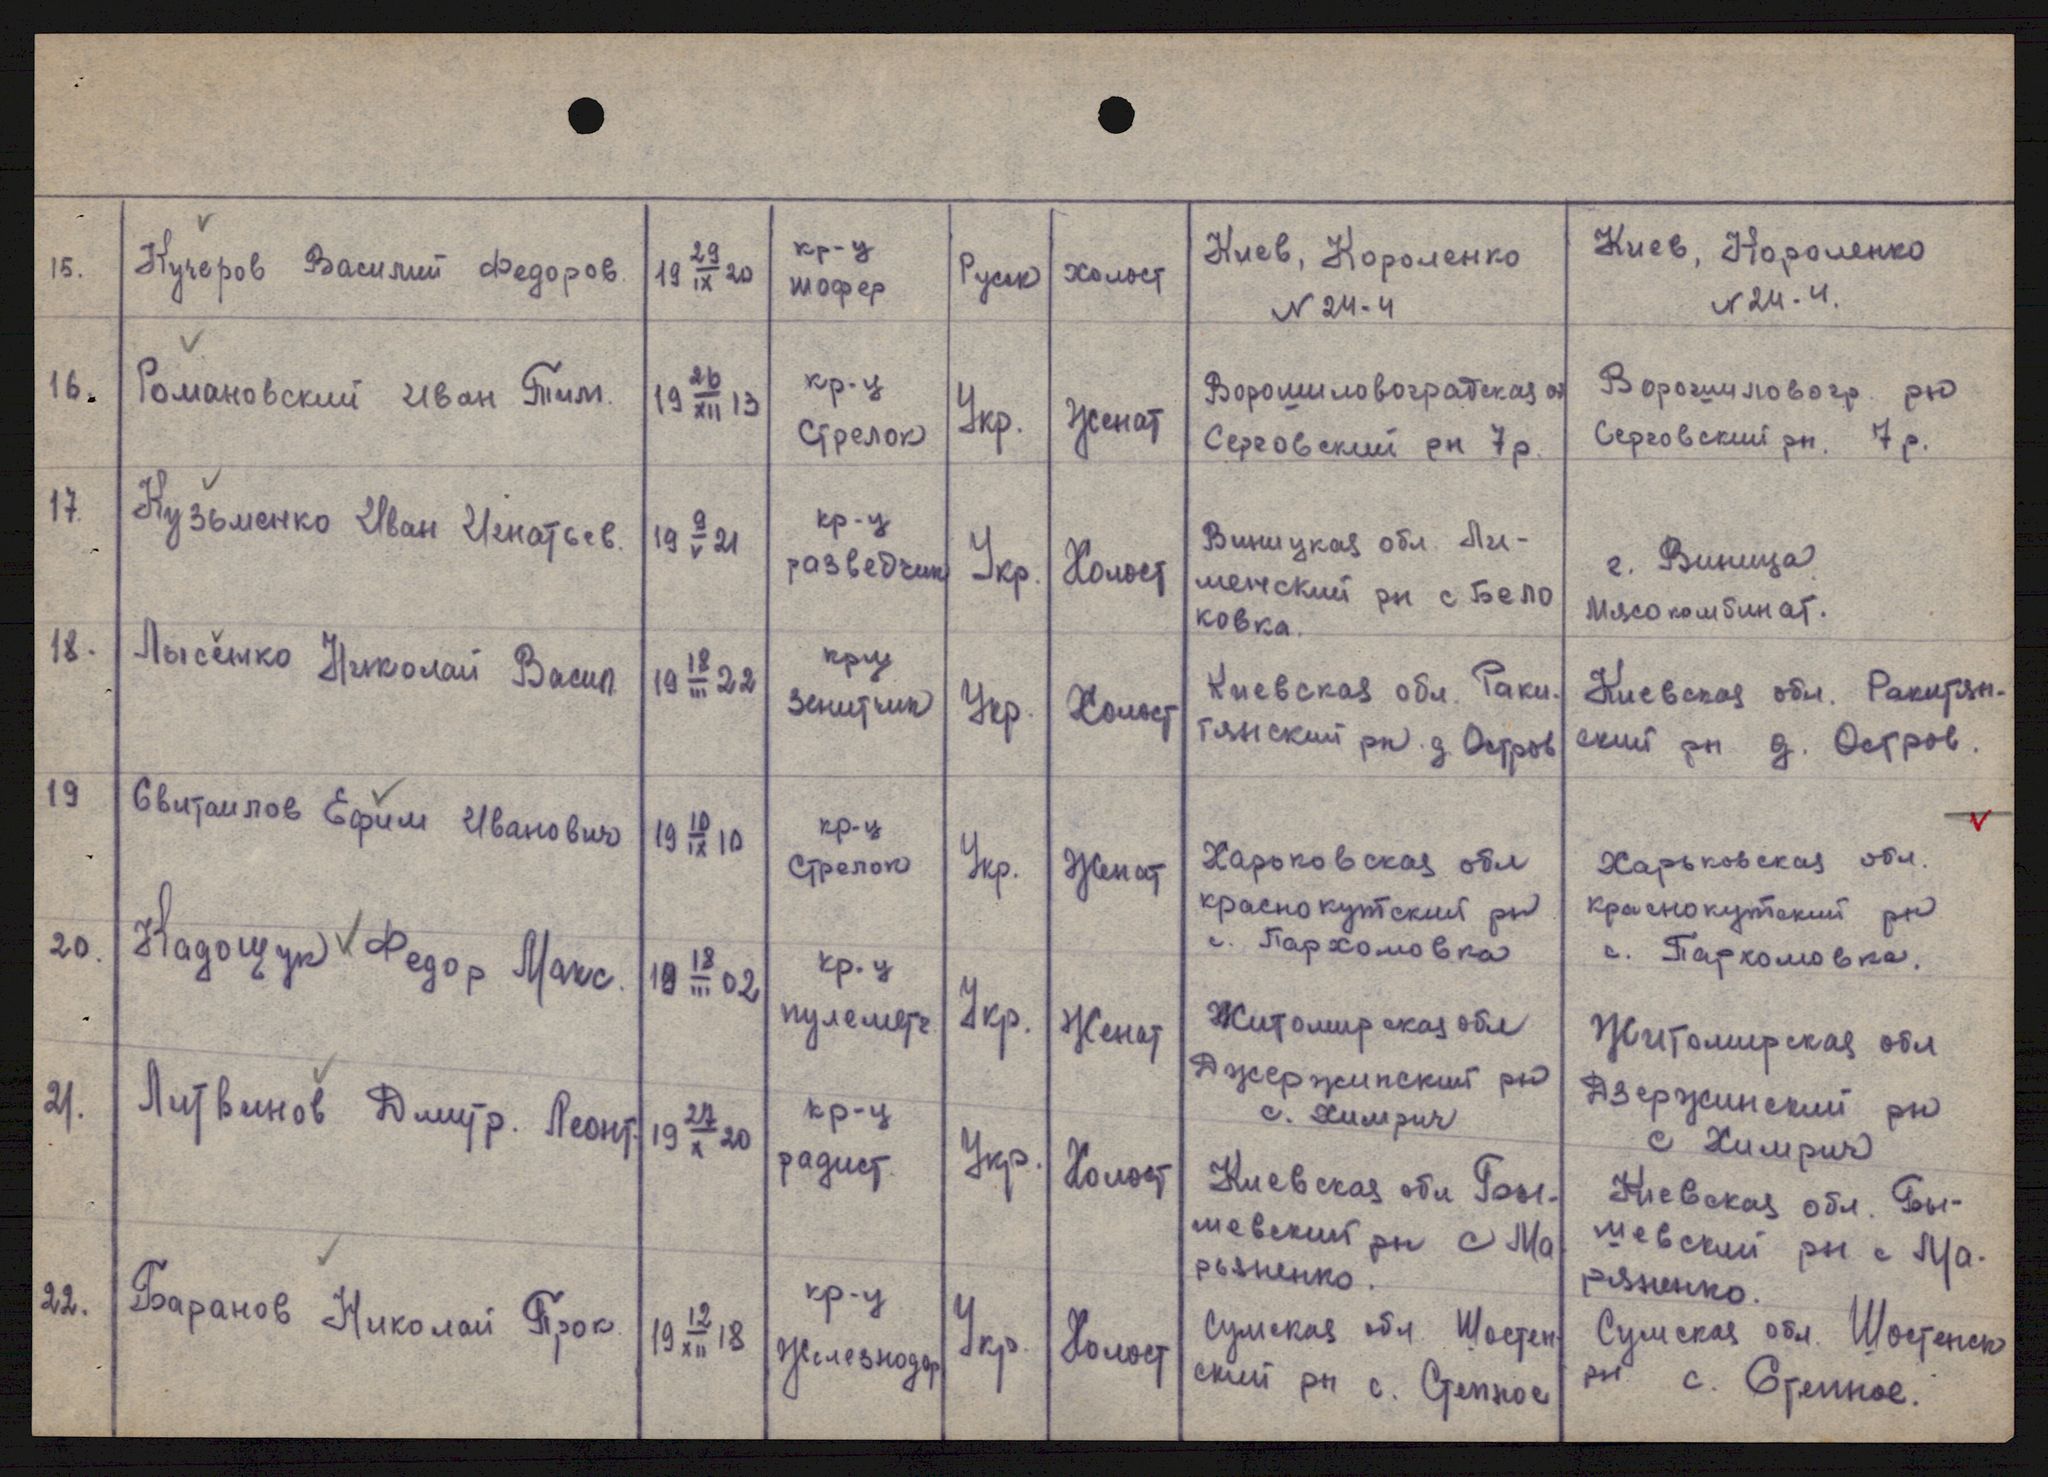 15. Кучеров Василий Федоров. 19 29/IX 20 кр-ц шофер Русск холост Киев, Короленко N 24-4 Киев, Короленко N 24-4.
16. Романовский Иван Тим. 19 26/XII 13 кр-ц Стрелок Укр. Женат Ворошиловоградская об Серговский рн 7 р. Ворошиловогр. рн Серговский рн. 7 р.
17. Кузьменко Иван Игнатьев. 19 9/V 21 кр-ц разведчик Укр. Холост Виницкая обл. Ли-менский рн с Бело ковка. г. Виница Мясокомбинат.
18. Лысенко Николай Васил. 19 18/III 22 кр-ц Зенитчик Укр. Холост Киевская обл. Раки-тянский рн. д. Остров Киевская обл. Ракитян-ский рн д. Остров.
19 Свитайлов Ефим Иванович 19 10/IX 10 кр-ц Стрелок Укр. Женат Харьковская обл краснокутский рн с. Пархомовка Харьковская обл. краснокутский рн с. Пархомовка.
20. Кадощук Федор Макс. 19 18/III 02 кр-ц пулеметч. Укр. Женат Житомирская обл Джержинский рн с. Химрич Житомирская обл Дзержинский рн с Химрич
21. Литвинов Дмитр. Леонт. 19 27/X 20 кр-ц радист. Укр. Холост Киевская обл Бы-шевский рн с Ма рьяненко. Киевская обл. Бы-шевский рн с Ма-ряненко.
22. Баранов Николай Прок. 19 12/XII 18 кр-ц Железнодор. Укр. Холост Сумская обл. Шостен-ский рн с. Степное Сумская обл. Шостенск рн с. Степное.